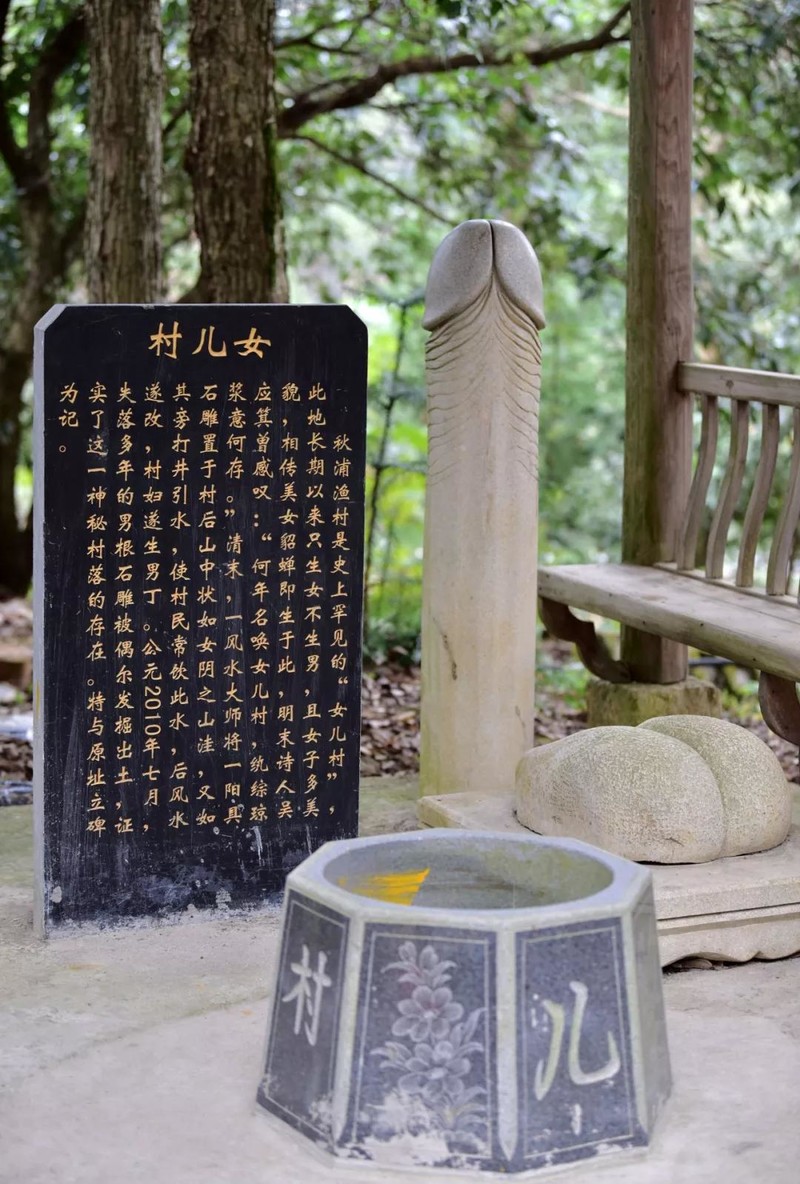 女儿村
秋浦渔村是史上罕见的“女儿村”，
此地长期以来只生女不生男，且女子多美
貌，相传美女貂蝉即生于此，明末诗人吴
应箕曾感叹：“何年名唤女儿村，纨综琼
浆意何存。”清末，一风水大师将一阳具
石雕置于村后山中状如女阴之山洼，又如
其旁打井引水，使村民常饮此水，后风水
遂改，村妇遂生男丁。公元2010年七月，
失落多年的男根石雕被偶尔发掘出土，证
实了这一神秘村落的存在。特与原址立碑
为记。
儿
村